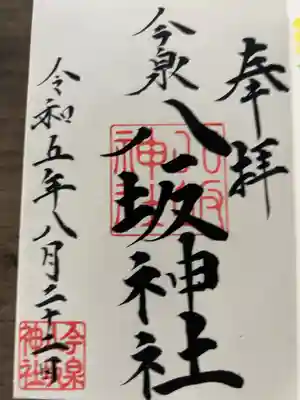 奉拝
今泉
八坂神社
令和五年八月二十二日
八坂神社
今泉神社